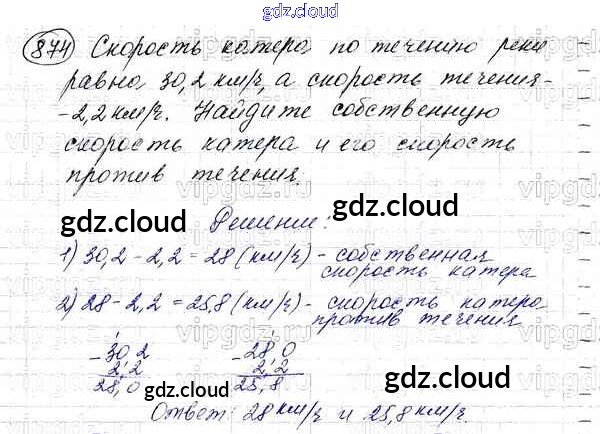 gdz.cloud
874 Скорость катера по течению реки
равна 30,2 км/ч, а скорость течения-
-2,2 км/ч. Найдите собственную
скорость катера и его скорость
против течения.
gdz.cloud gdz.cloud
Решение:
1) 30,2 - 2,2 = 28 (км/ч) - собственная
скорость катера
2) 28 - 2,2 = 25,8 (км/ч) - скорость катера
против течения
- 30,2 - 28,0
2,2 2,2
28,0 25,8
gdz.cloud gdz.cloud
Ответ: 28 км/ч и 25,8 км/ч.
gdz.cloud